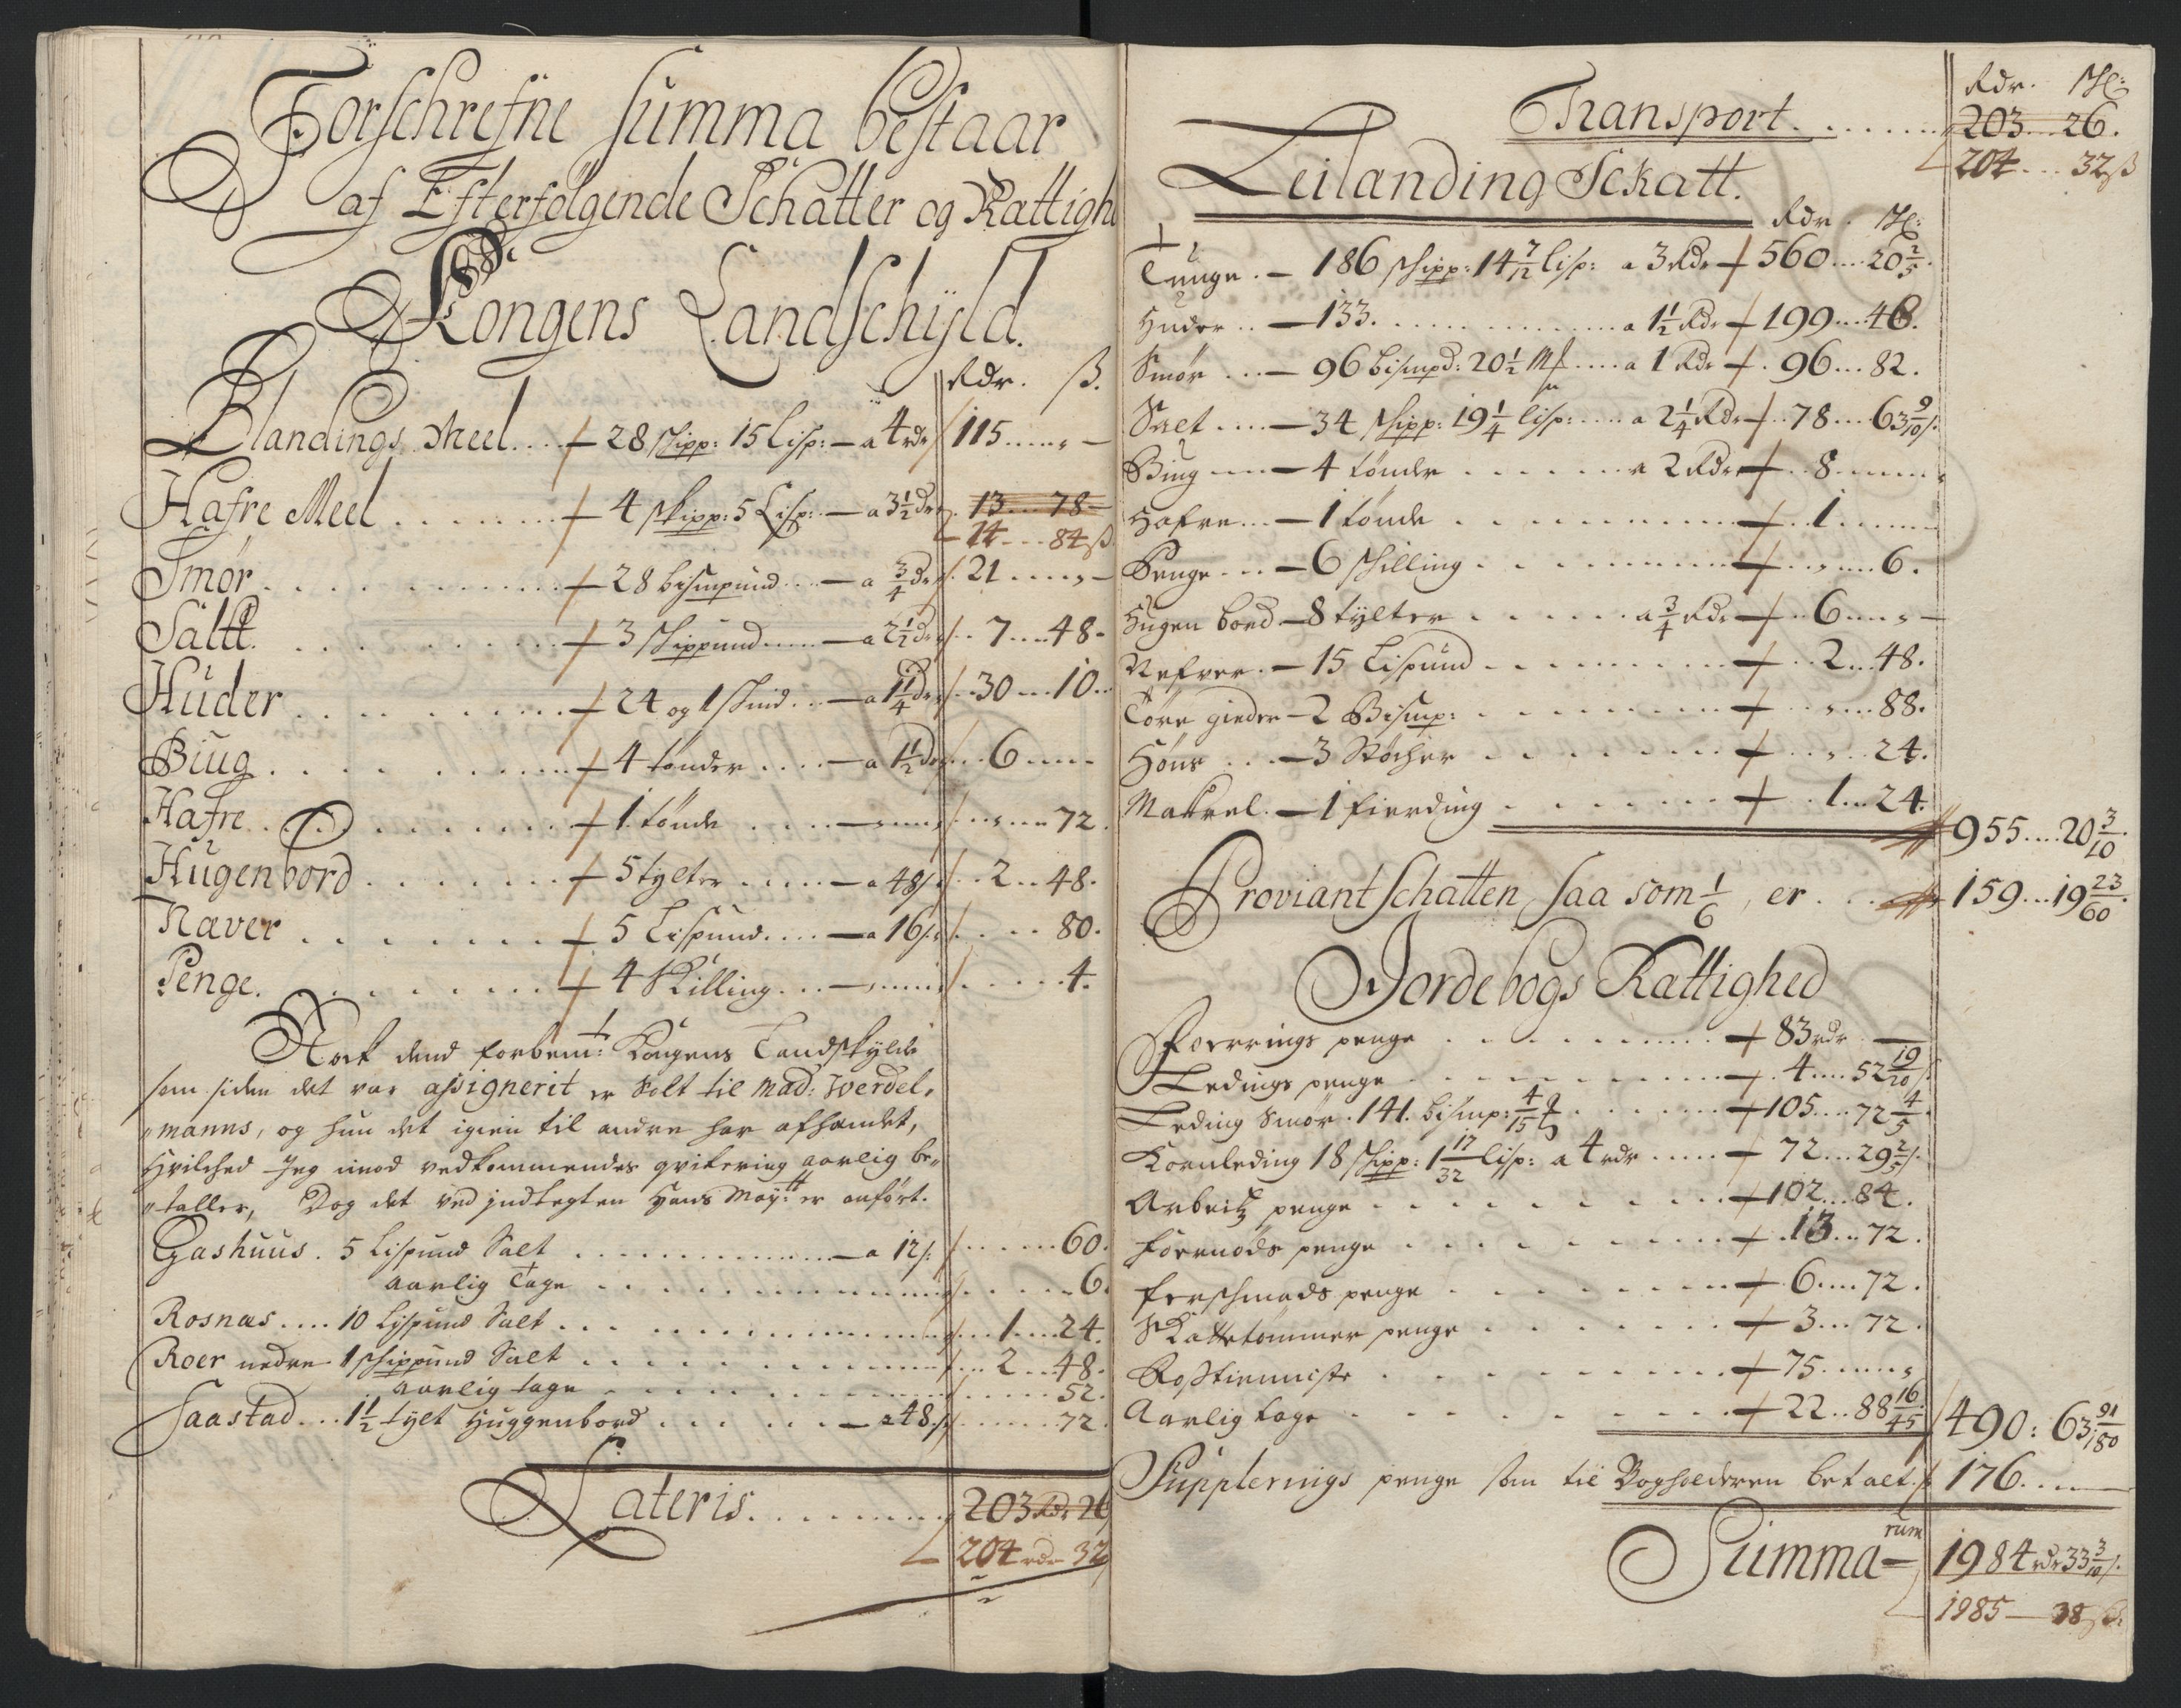 Forschrefne Summa bestaar
af Efterfølgende Schatter og Rattigh
Kongens Landschÿld.
Rdr. ß.
Blandings Meel .... 28 skipp: 15 Lisp: — a 4 rdr 115 .... „ —
Hafre Meel ....... 4 skipp: 5 Lisp: — a 3½ dr 13 ... 78
14 ... 84 ß
Smør ....... 28 bismpund ... — a ¾ dr 21 .... „ —
Saltt ....... 3 skippund ..... — a 2½ dr 7 ... 48 -
Huder ....... 24 og 1 skind ... — a 1¼ dr 30 ... 10 ..
Biug ....... 4 tønder .... — a 1½ dr 6 ....
Hafre ....... 1 tønde .... — „ .... 72.
Hugenbord ....... 5 tylter ..... — a 48 ß 2 .. 48.
Næver ....... 5 Lispund .... — a 16 ß .... 80.
Penge ....... 4 Skilling ... — .... 4.
Nock dend forbem: Kongens Landskylde
som siden det var assignerit er Solt til Mad: Werdel„
„manns, og hun det igien til andre har afhandt,
Hvilched Jeg imod vedkommendes qvitering aarlig be„
„taller, Dog det ved jndtegten Hans Maÿ:tt er anført.
Gashuus . 5 Lispund Salt ....... — a 12 ß ..... 60.
aarlig Tage ....... 6.
Rosnæs .... 10 Lispund Salt ....... 1 ... 24.
Roer nedre 1 skippund Salt ....... 2 ... 48.
aarlig tage ....... 52.
Saastad ... 1½ tylt Huggenbord ....... — a 48 ß ..... 72.
Lateris ....... 203 Rdr 26
204 rdr 32
Rdr. ẞ:
Transport ....... 203 ... 26.
204 ... 32 ß
Leilanding Sckatt.
Rdr. ẞ:
Tunge . — 186 skipp: 14 7/12 lisp: a 3 Rdr 560 ... 20 2/5.
Huder .. — 133. ....... a 1½ Rdr 199 ... 48.
Smør ... — 96 bismpd: 20½ M .... a 1 Rdr 96 ... 82.
Salt .... — 34 skipp: 19¼ lisp: .... a 2¼ Rdr 78 ... 63 9/10 ß
Biug .... — 4 tønder ....... a 2 Rdr 8 .....
Hafre ... — 1 tønde ....... 1 .....
Penge ... — 6 skilling ....... „ ... 6.
Hugen bord — 8 tylter ....... a ¾ Rdr 6 ... „ —
Nefver . — 15 Lispund ....... 2 ... 48.
Tøre gieder — 2 Bismp: ....... „ ... 88.
Høns ... — 3 Støcher ....... „ .. 24.
Makrel . — 1 fierding ....... 1 ... 24.
955 .... 20 3/10.
Proviant Schatten saa som 1/6, er ... 159 ... 19 23/60.
Jordebogs Rattighed
Foerrings penge ....... 83 rdr —
Ledings penge ....... 4 .... 52 19/20 ß
Leding Smør . 141 . bismp: 4/15 ....... 105 ... 72 4/5.
Kornleding 18 skipp: 1 17/32 lisp: a 4 rdr ..... 72 ... 29 2/5 ß.
Arbeitz penge ....... 102 ... 84.
Foernøds penge ....... 13 ... 72.
Ferschmads penge ....... 6 .... 72.
Skattetømmer penge ....... 3 ... 72.
Rostienniste ....... 75 ..... „
Aarlig tage ....... 22 .. 88 16/45 490: 63 91/180
Supplerings penge som til Fogholderen betalt 176 .... —
Summa-rum 1984 rdr 33 3/10 ß.
1985 — 38 ß.